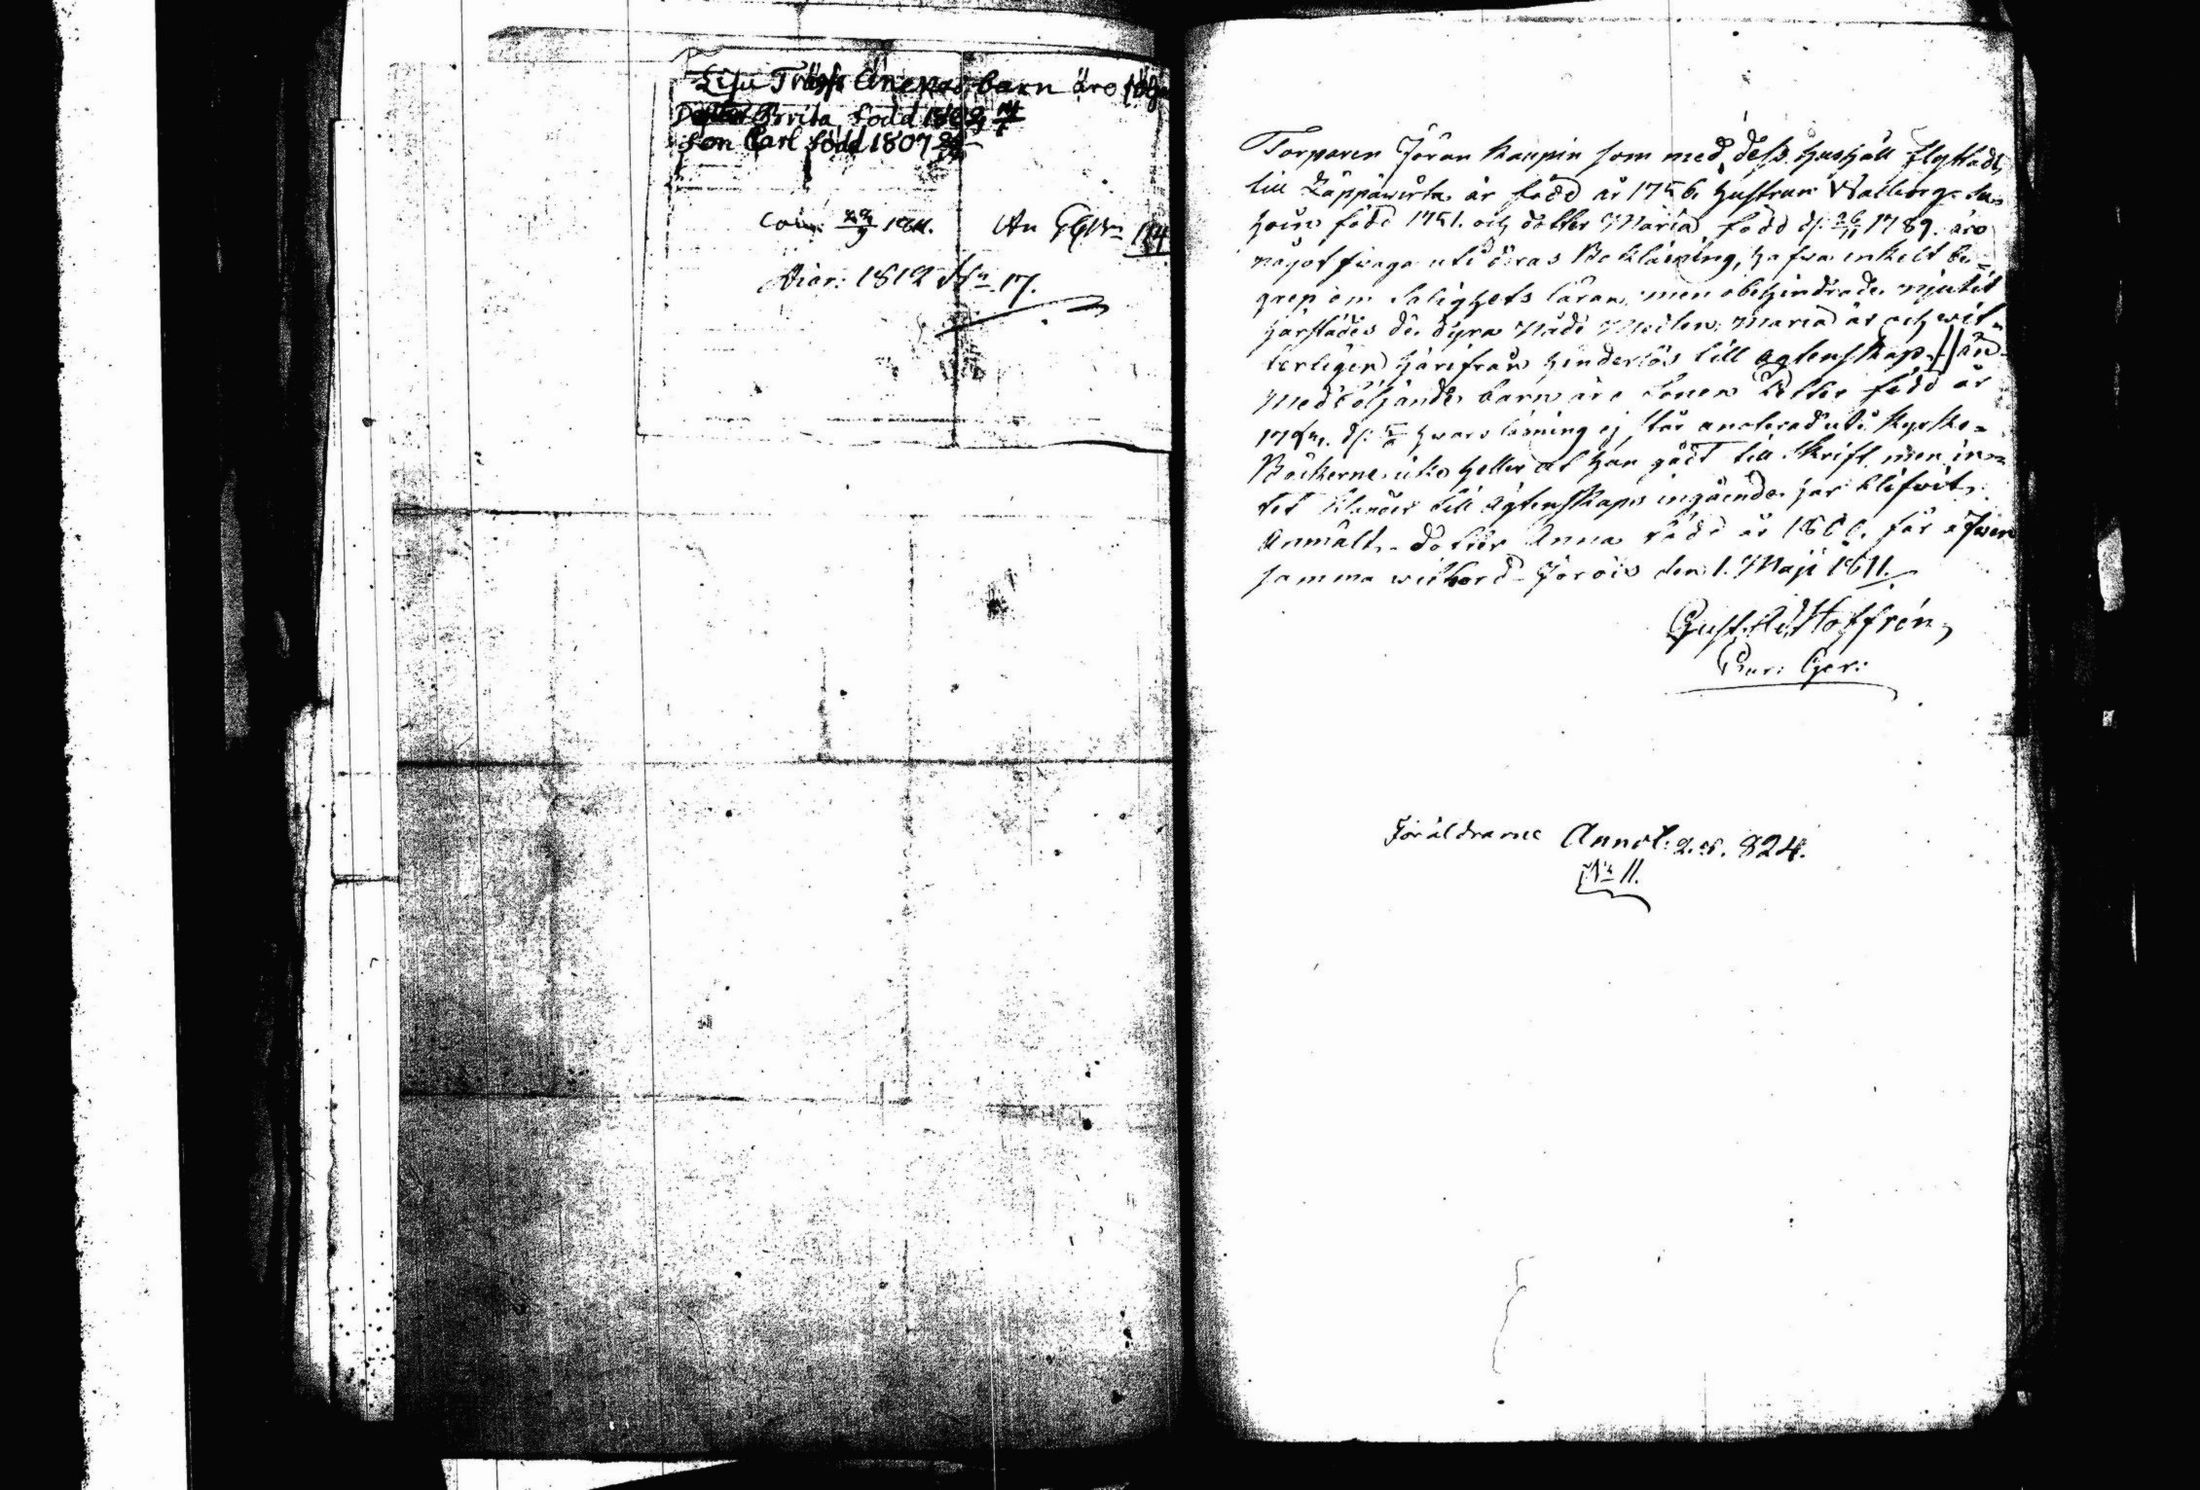 barn äro
Dotter Brita född
Son Carl född 1807
1811.
1812 No 17.
Torparen Jöran Kaupin som med dess hushåll flyttade
till Läppäwirta är född år 1756. hustrun Walborg
född 1751. och dotter Maria född d. 26/11 1789. äro
något swaga uti deras Bokläsning, hafwa enkelt be-
grep om Salighets läran, men obehindrade njutit
härstädes de dyra Nåde Medlen. Maria är och wet-
terligen härifrån hinderlös till ägtenskap // än
Medföljande barn äro Sonen Petter född år
hwars läsning ej står antecknad uti Kyrko-
Böckerne, icke heller at han gådt till Skrift, men in-
tet klander till ägtenskaps ingående har blifwit
Anmält. dotter Anna född år 1800. får äfwen
samma witsord. Jorois den 1. Maji 1811.
Gust. Ad. Hoffrén,
Föräldrarne Annot: 824.
No 11.